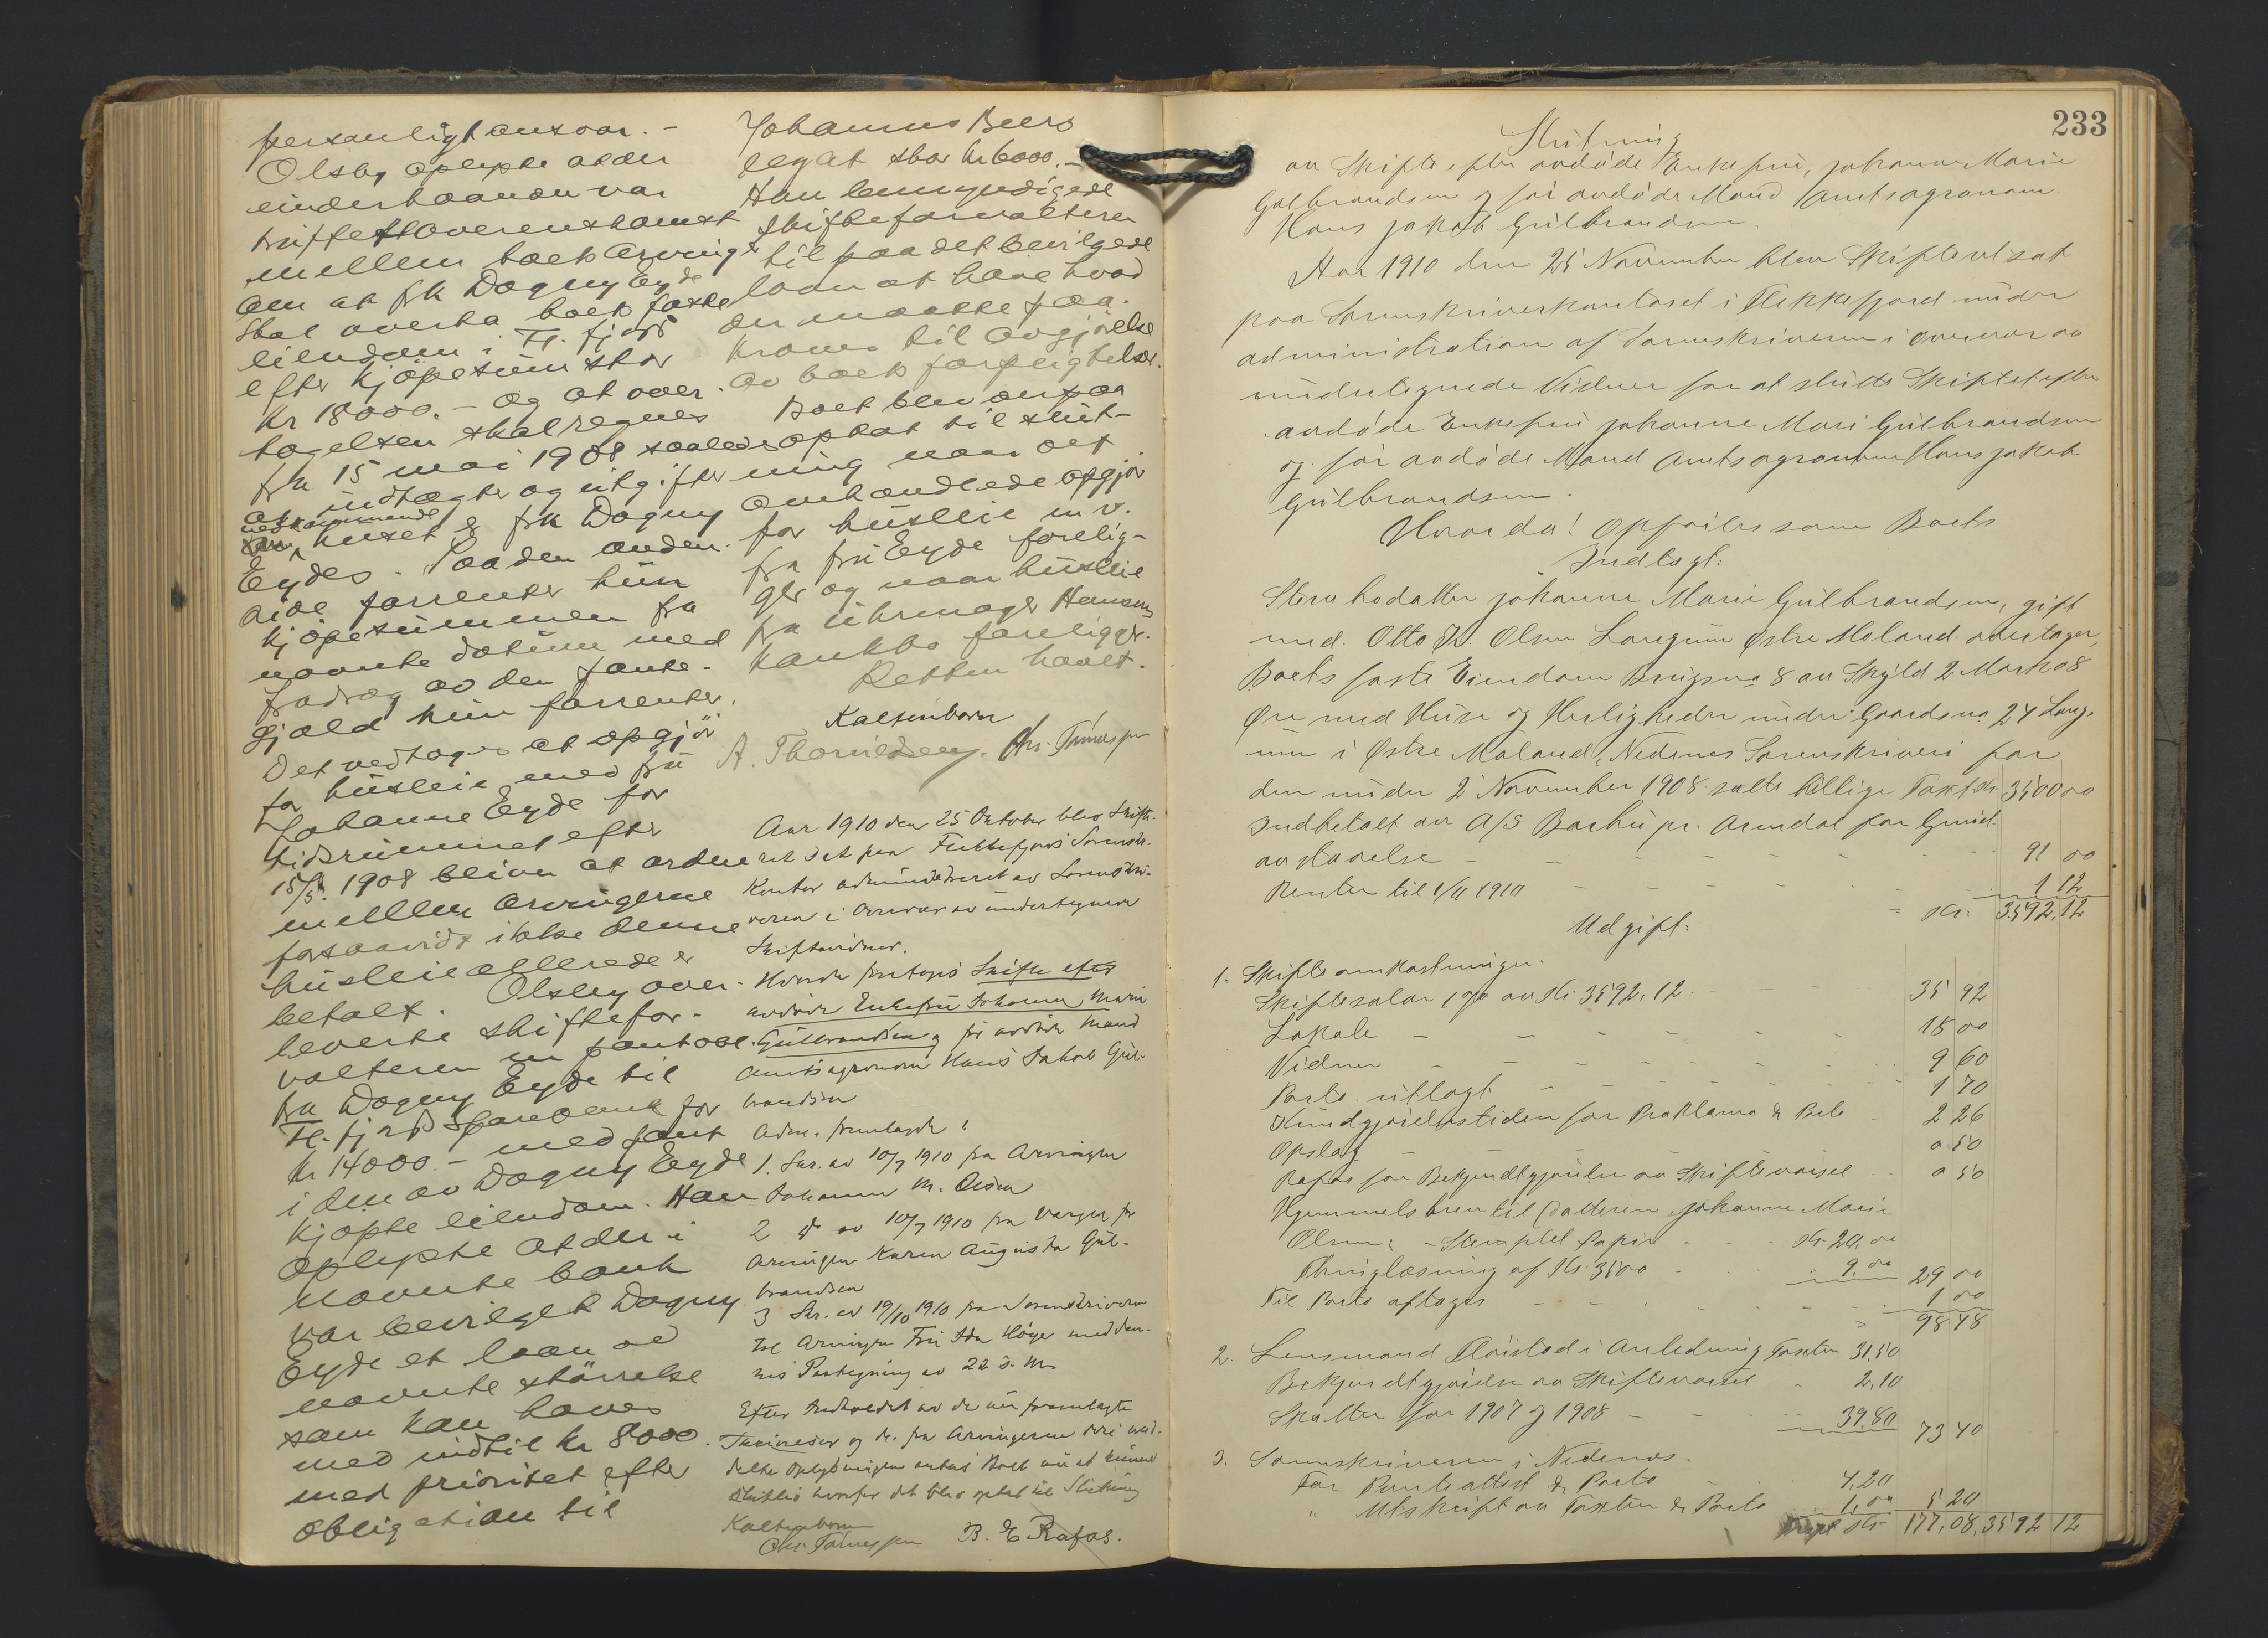 personligt ansvar. -
Olsby oplyste at der
underhaanden var
truffet overenskomst
mellem boets arvinger
om at frk Dagny Eyde
skal overta boets faste
eiendom i Fl.fjord
efter kjøpesum stor
kr 18000.- og at over-
tagelsen skal regnes
fra 15 mai 1908 saaledes
at indtægter og utgifter
vedkommende
huset er frk Dagny
Eydes. Paa den anden
side forrenter hun
kjøpesummen fra
nævnte datum med
fradrag av den pante-
gjæld hun forrenter.
Det vedtages at opgjør
for husleie med fru
Johanne Eyde for
tidsrummet efter
15/5 1908 bliver at ordne
mellem arvingerne
forsaavidt ikke denne
husleie allerede er
betalt. Olsby over-
leverte skiftefor-
valteren en pantobl.
fra Dagny Eyde til
Fl.fjords Sparebank for
kr 14000.- med pant
i den av Dagny Eyde
kjøpte eiendom. Han
oplyste at der i
nævnte bank
var bevilget Dagny
Eyde et laan av
nævnte størrelse
som kan haves
med indtil kr 8000.
med prioritet efter
obligation til
Johannes Beers
legat stor kr 6000.-
Han bemyndigede
skifteforvalteren
til paa det bevilgede
laan at hæve hvad
der maatte faa.
Kroner til avgjørelse
av boets forpligtelser.
Boet blev derpaa
optat til slut-
ning naar det
omhandlede opgjør
for husleie m.v.
fra fru Eyde forelig-
ger og naar husleie
fra uhrmager Hansens
konkbo foreligger.
Retten hævet.
Kaltenborn
A. Thorvildsen. Chr. Tønnessen
Aar 1910 den 25 Oktober blev Skifte-
ret sat paa Flekkefjords Sorenskr.
Kontor administreret av Sorenskri-
veren i Overvær av undertegnede
Skiftevidner.
Hvorda foretoges Skifte efter
avdøde Enkefru Johanne Marie
Gulbrandsen og før avdøde Mand
Amtsagronom Hans Jakob Gul-
brandsen
Adm. fremlagde:
1. Skr. av 10/7 1910 fra Arvingen
Johanne M. Olsen
2 do av 10/7 1910 fra Vergen for
Arvingen Karen Augusta Gul-
brandsen
3 Skr. av 19/10 1910 fra Sorenskriveren
til Arvingen Fru Ida Höyer med den-
nes Paategning av 22 d. M.
Efter Indholdet av de nu fremlagte
Skrivelser og de fra Arvingerne
delte Oplysninger antas Boet nu at kunne
sluttes hvorfor det blev optat til Slutning
Kaltenborn
Chr. Tønnessen B. E Rafos.
233
Slutning
av Skifte efter avdøde Enkefru, Johanne Marie
Gulbrandsen og før avdøde Mand Amtsagronom
Hans Jakob Gulbrandsen.
Aar 1910 den 25 November blev Skifteret sat
paa Sorenskriverkontoret i Flekkefjord under
administration af Sorenskriveren i overvær av
undertegnede Vidner for at slutte Skiftet efter
avdøde Enkefru Johanne Marie Gulbrandsen
og før avdøde Mand Amtsagronom Hans Jakob
Gulbrandsen.
Hvorda! Opførtes som Boets
Indtægt:
Johanne Marie Gulbrandsen, gift
med Otto Olsen Langum Østre Moland overtager
Boets faste Eiendom Brugsno 8 av Skyld 2 Mark 08
Øre med Huse og Herligheder under Gaardsno 24 Lang-
um i Østre Moland, Nedenes Sorenskriveri for
den under 2 November 1908 satte billige Taxt kr. 3500 00
Indbetalt av A/S Barbu pr. Arendal for Grund-
avstaaelse - - - 91 00
Renter til 1/11 1910 - - - 1 12
= kr. 3592.12
Udgift:
1. Skifteomkostninger.
Skiftesalær 1 % av kr. 3592.12 - 35 92
Lokale - - - 18 00
Vidner - - - 9 60
Porto utlagt - - - 1 70
Kundgjørelsestiden for Proklama & Porto - 2 26
Opslag 0 50
Rafos for Bekjendtgjørelse av Skiftevarsel - 0 50
Hjemmelsbrev til Datteren Johanne Marie
Olsen: - Stemplet Papir - kr. 20.00
Thinglæsning af kr. 3500 - 9.00 29 00
Til Porto aftages - - - 1 00
98 48
2. Lensmand Fløistad i Anledning Taxten 31.50
Bekjendtgjørelse av Skiftevarsel - 2.10
Skatter for 1907 og 1908 - 39.80 73 40
3. Sorenskriveren i Nedenes.
For Panteattest & Porto 4.20
" Utskrift av Taxten & Porto 1.00 5 20
kr. 177.08. 3592 12